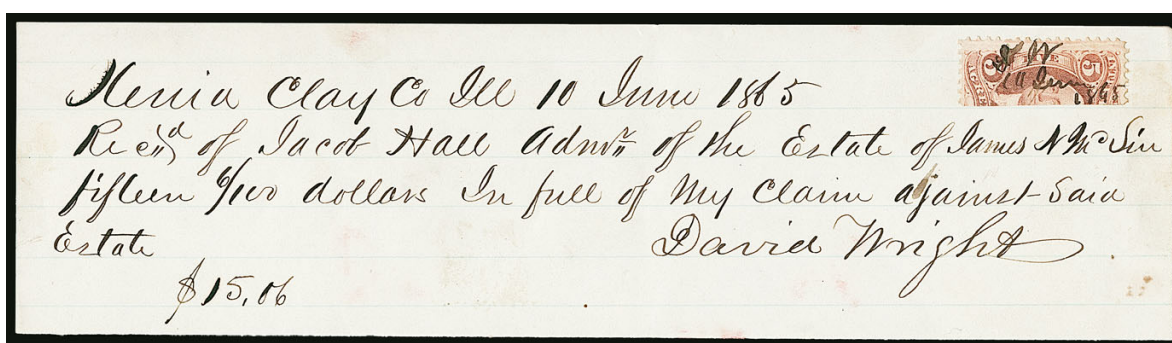 Xenia Clay Co Ill 10 June 1865
Recd of Jacob Hall Admr of the Estate of James N Mc
fifteen 6/100 dollars In full of My Claim against Said
Estate David Wright
$15,06
5 5
10 June
1865